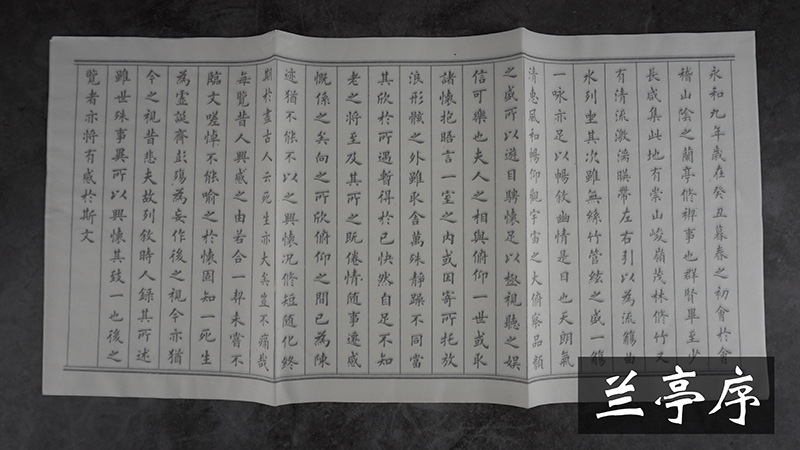 永和九年歲在癸丑暮春之初會於會
稽山陰之蘭亭修禊事也群賢畢至少
長咸集此地有崇山峻嶺茂林修竹又
有清流激湍暎帶左右引以為流觴曲
水列坐其次雖無絲竹管絃之盛一觴
一咏亦足以暢敘幽情是日也天朗氣
清惠風和暢仰觀宇宙之大俯察品類
之盛所以遊目騁懷足以極視聽之娛
信可樂也夫人之相與俯仰一世或取
諸懷抱晤言一室之內或因寄所托放
浪形骸之外雖取舍萬殊靜躁不同當
其欣於所遇暫得於己怏然自足不知
老之將至及其所之既倦情隨事遷感
慨係之矣向之所欣俯仰之間已為陳
迹猶不能不以之興懷況修短隨化終
期於盡古人云死生亦大矣豈不痛哉
每覽昔人興感之由若合一契未嘗不
臨文嗟悼不能喻之於懷固知一死生
為虛誕齊彭殤為妄作後之視今亦猶
今之視昔悲夫故列敘時人錄其所述
雖世殊事異所以興懷其致一也後之
覽者亦將有感於斯文
兰亭序